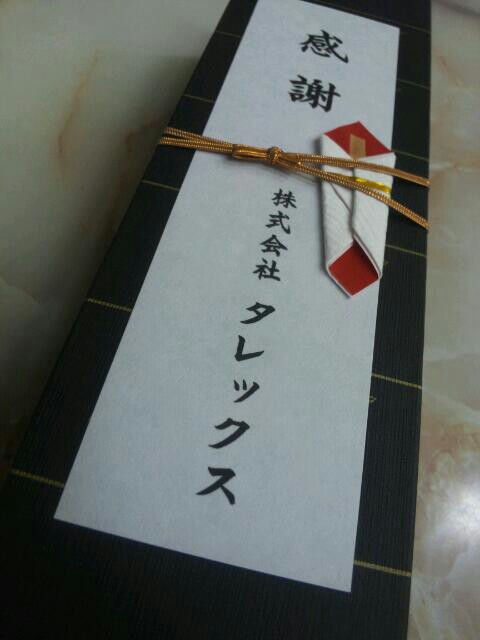 感謝
株式会社
タレックス